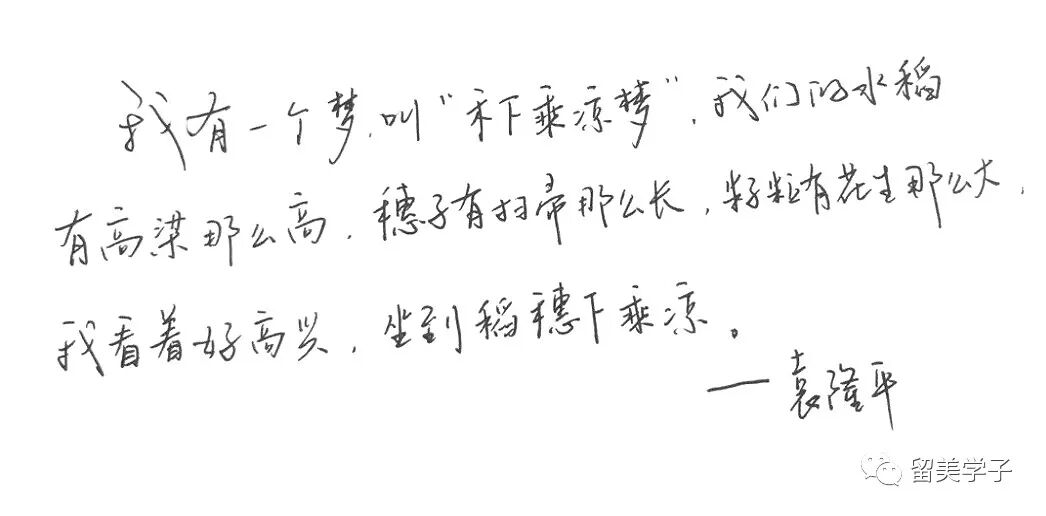 我有一个梦,叫“禾下乘凉梦”,我们的水稻
有高梁那么高,穗子有扫帚那么长,籽粒有花生那么大,
我看着好高兴,坐到稻穗下乘凉。
——袁隆平
留美学子